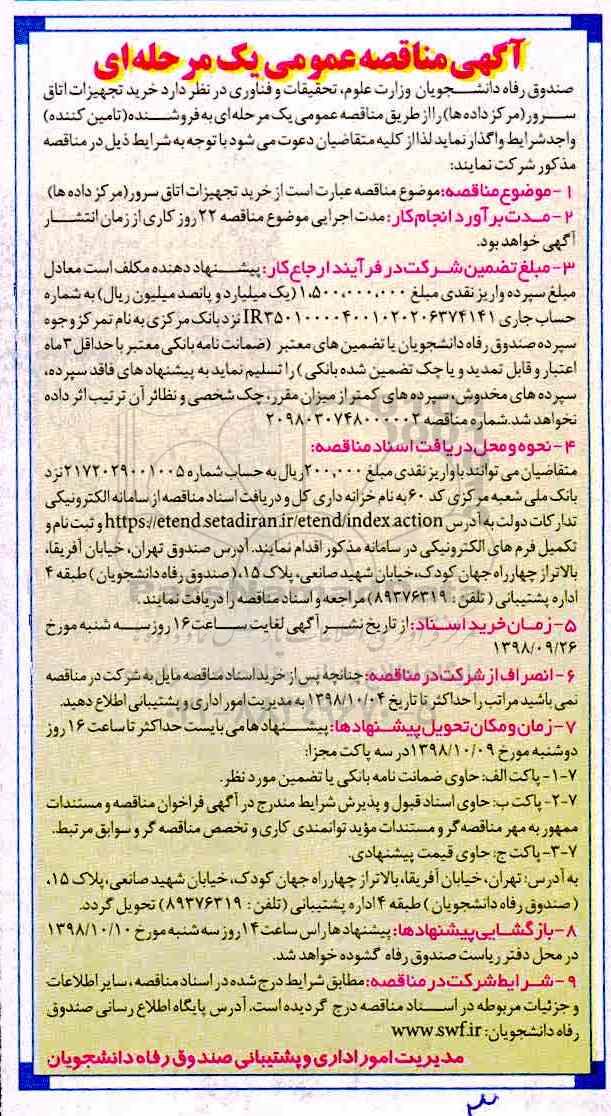 آگهی مناقصه عمومی یک مرحله ای
صندوق رفاه دانشجویان وزارت علوم، تحقیقات و فناوری در نظر دارد خرید تجهیزات اتاق
سرور (مرکز داده ها) را از طریق مناقصه عمومی یک مرحله ای به فروشنده (تامین کننده)
واجد شرایط واگذار نماید لذا از کلیه متقاضیان دعوت می شود با توجه به شرایط ذیل در مناقصه
مذکور شرکت نمایند:
۱- موضوع مناقصه: موضوع مناقصه عبارت است از خرید تجهیزات اتاق سرور (مرکز داده ها)
۲- مدت برآورد انجام کار: مدت اجرایی موضوع مناقصه ۲۲ روز کاری از زمان انتشار
آگهی خواهد بود.
۳- مبلغ تضمین شرکت در فرآیند ارجاع کار: پیشنهاد دهنده مکلف است معادل
مبلغ سپرده واریز نقدی مبلغ ۱،۵۰۰،۰۰۰،۰۰۰ (یک میلیارد و پانصد میلیون ریال) به شماره
حساب جاری IR۳۵۰۱۰۰۰۰۴۰۰۱۰۲۰۲۰۶۳۷۴۱۴۱ نزد بانک مرکزی به نام تمرکز وجوه
سپرده صندوق رفاه دانشجویان یا تضمین های معتبر (ضمانت نامه بانکی معتبر با حداقل ۳ ماه
اعتبار و قابل تمدید و یا چک تضمین شده بانکی) را تسلیم نماید به پیشنهاد های فاقد سپرده،
سپرده های مخدوش، سپرده های کمتر از میزان مقرر، چک شخصی و نظائر آن ترتیب اثر داده
نخواهد شد. شماره مناقصه ۲۰۹۸۰۳۰۷۴۸۰۰۰۰۰۲
۴- نحوه و محل دریافت اسناد مناقصه:
متقاضیان می توانند با واریز نقدی مبلغ ۲۰۰,۰۰۰ ریال به حساب شماره ۲۱۷۲۰۲۹۰۰۱۰۰۵ نزد
بانک ملی شعبه مرکزی کد ۶۰ به نام خزانه داری کل و دریافت اسناد مناقصه از سامانه الکترونیکی
تدارکات دولت به آدرس https://etend.setadiran.ir/etend/index.action و ثبت نام و
تکمیل فرم های الکترونیکی در سامانه مذکور اقدام نمایند. آدرس صندوق تهران، خیابان آفریقا،
بالاتر از چهارراه جهان کودک، خیابان شهید صانعی، پلاک ۱۵، (صندوق رفاه دانشجویان) طبقه ۴
اداره پشتیبانی (تلفن: ۸۹۳۷۶۳۱۹) مراجعه و اسناد مناقصه را دریافت نمایند.
۵- زمان خرید اسناد: از تاریخ نشر آگهی لغایت ساعت ۱۶ روز سه شنبه مورخ
۱۳۹۸/۰۹/۲۶
۶- انصراف از شرکت در مناقصه: چنانچه پس از خرید اسناد مناقصه مایل به شرکت در مناقصه
نمی باشید مراتب را حداکثر تا تاریخ ۱۳۹۸/۱۰/۰۴ به مدیریت امور اداری و پشتیبانی اطلاع دهید.
۷- زمان و مکان تحویل پیشنهادها: پیشنهادها می بایست حداکثر تا ساعت ۱۶ روز
دوشنبه مورخ ۱۳۹۸/۱۰/۰۹ در سه پاکت مجزا:
۷-۱- پاکت الف: حاوی ضمانت نامه بانکی یا تضمین مورد نظر.
۷-۲- پاکت ب: حاوی اسناد قبول و پذیرش شرایط مندرج در آگهی فراخوان مناقصه و مستندات
ممهور به مهر مناقصه گر و مستندات مؤید توانمندی کاری و تخصص مناقصه گر و سوابق مرتبط.
۷-۳- پاکت ج: حاوی قیمت پیشنهادی.
به آدرس: تهران، خیابان آفریقا، بالاتر از چهارراه جهان کودک، خیابان شهید صانعی، پلاک ۱۵،
(صندوق رفاه دانشجویان) طبقه ۴ اداره پشتیبانی (تلفن: ۸۹۳۷۶۳۱۹) تحویل گردد.
۸- بازگشایی پیشنهادها: پیشنهادها راس ساعت ۱۴ روز سه شنبه مورخ ۱۳۹۸/۱۰/۱۰
در محل دفتر ریاست صندوق رفاه گشوده خواهد شد.
۹- شرایط شرکت در مناقصه: مطابق شرایط درج شده در اسناد مناقصه، سایر اطلاعات
و جزئیات مربوطه در اسناد مناقصه درج گردیده است. آدرس پایگاه اطلاع رسانی صندوق
رفاه دانشجویان: www.swf.ir
مدیریت امور اداری و پشتیبانی صندوق رفاه دانشجویان